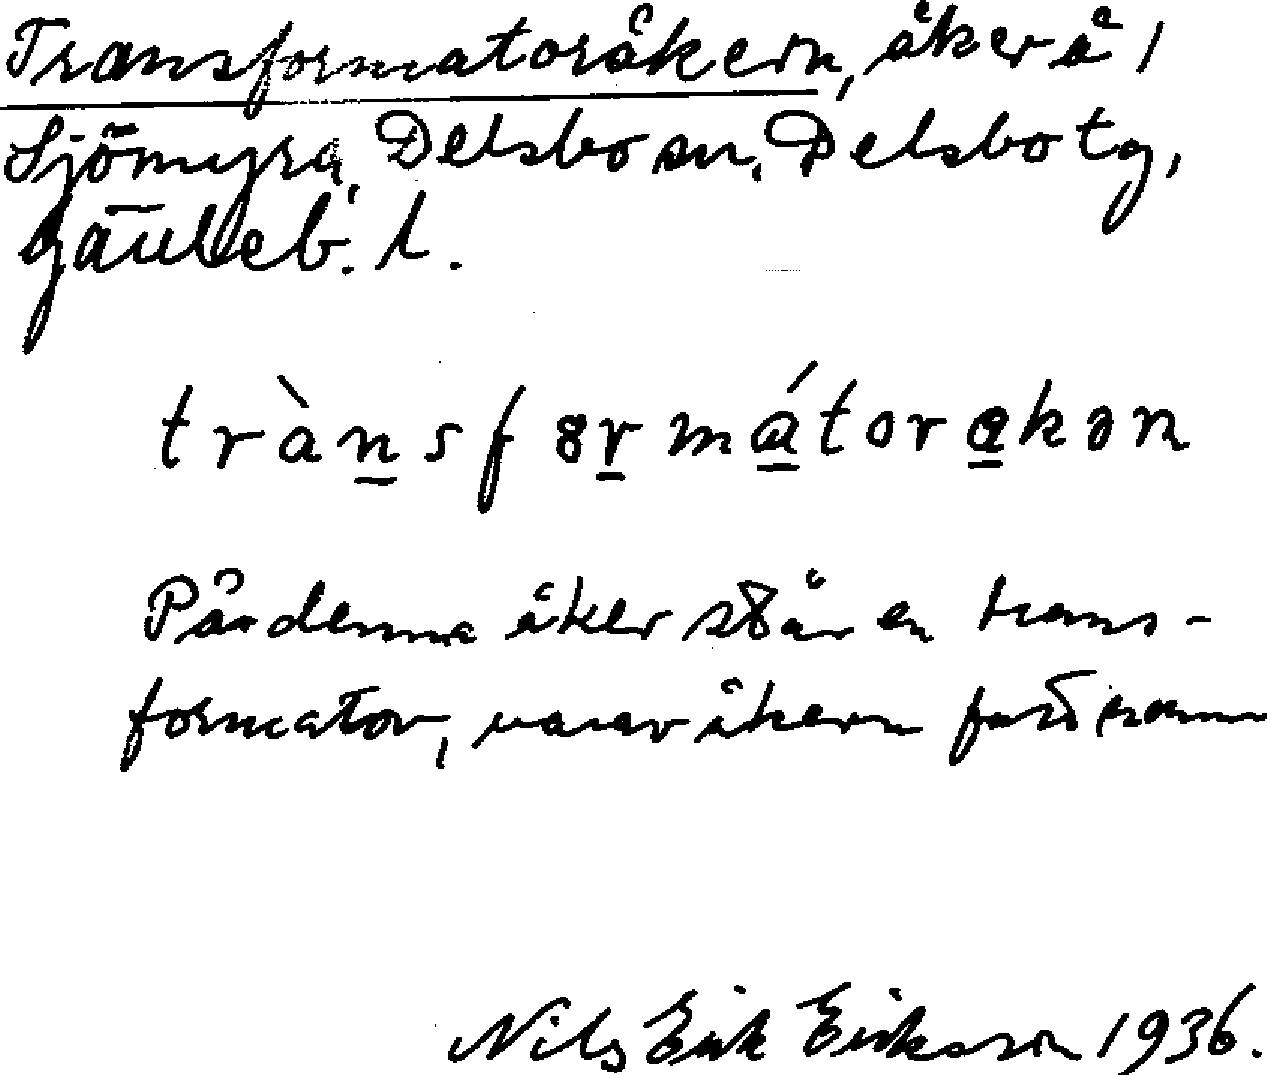 Transformatoråkern, åker å 1
Sjömyra, Delsbo sn, Delsbo tg,
Gävleb. l.
trànsformátorakən
På denna åker står en trans-
formator, varav åkern fått namn
Nils Erik Eriksson 1936.